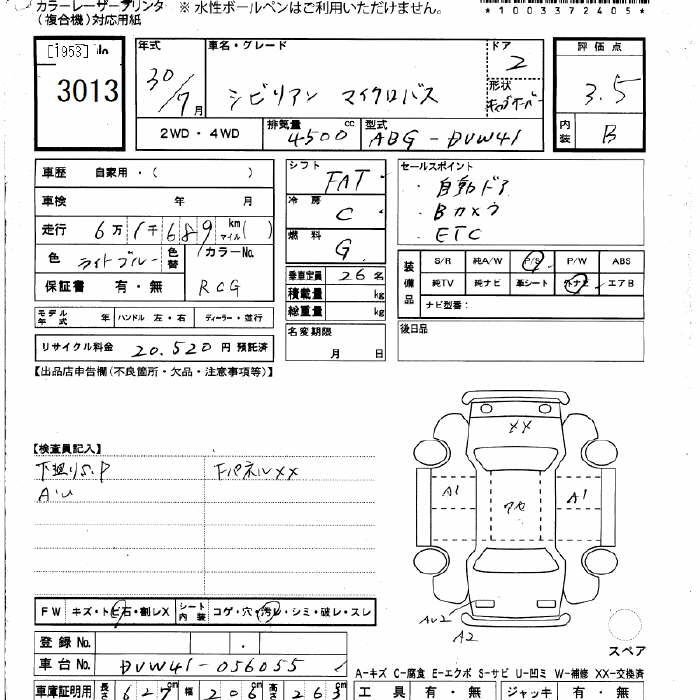 カラーレーザープリンタ ※ 水性ボールペンはご利用いただけません。
(複合機)対応用紙
*1003372405*
[1953] No
3013
年式
30/7月
車名・グレード
シビリアン マイクロバス
ドア
2
形状
キャブオーバー
評価点
3.5
内装
B
2WD・4WD
排気量
4500 cc
型式
ABG-DVW41
車歴 自家用・( )
車検 年 月
走行 6万1千689 km マイル ( )
色 ライトブルー 色替
カラーNo.
RCG
保証書 有・無
シフト
FAT
冷房
C
燃料
G
乗車定員 26名
積載量 kg
総重量 kg
名変期限
月 日
セールスポイント
・自動ドア
・Bカメラ
・ETC
装備品
S/R 純A/W P/S P/W ABS
純TV 純ナビ 革シート 外ナビ エアB
ナビ型番:
後日品
モデル年式 年 ハンドル 左・右 ディーラー・並行
リサイクル料金 20,520 円 預託済
【出品店申告欄(不良箇所・欠品・注意事項等)】
【検査員記入】
下廻りS.P
FパネルXX
A・U
XX
A1
A1
AU2
A2
スペア
FW キズ・トビ石・割レX シート内装 コゲ・穴・汚レ・シミ・破レ・スレ
登録No.
車台No. DVW41-056055
A-キズ C-腐食 E-エクボ S-サビ U-凹ミ W-補修 XX-交換済
車庫証明用 長さ 627cm 幅 206cm 高さ 263cm
工具 有・無 ジャッキ 有・無